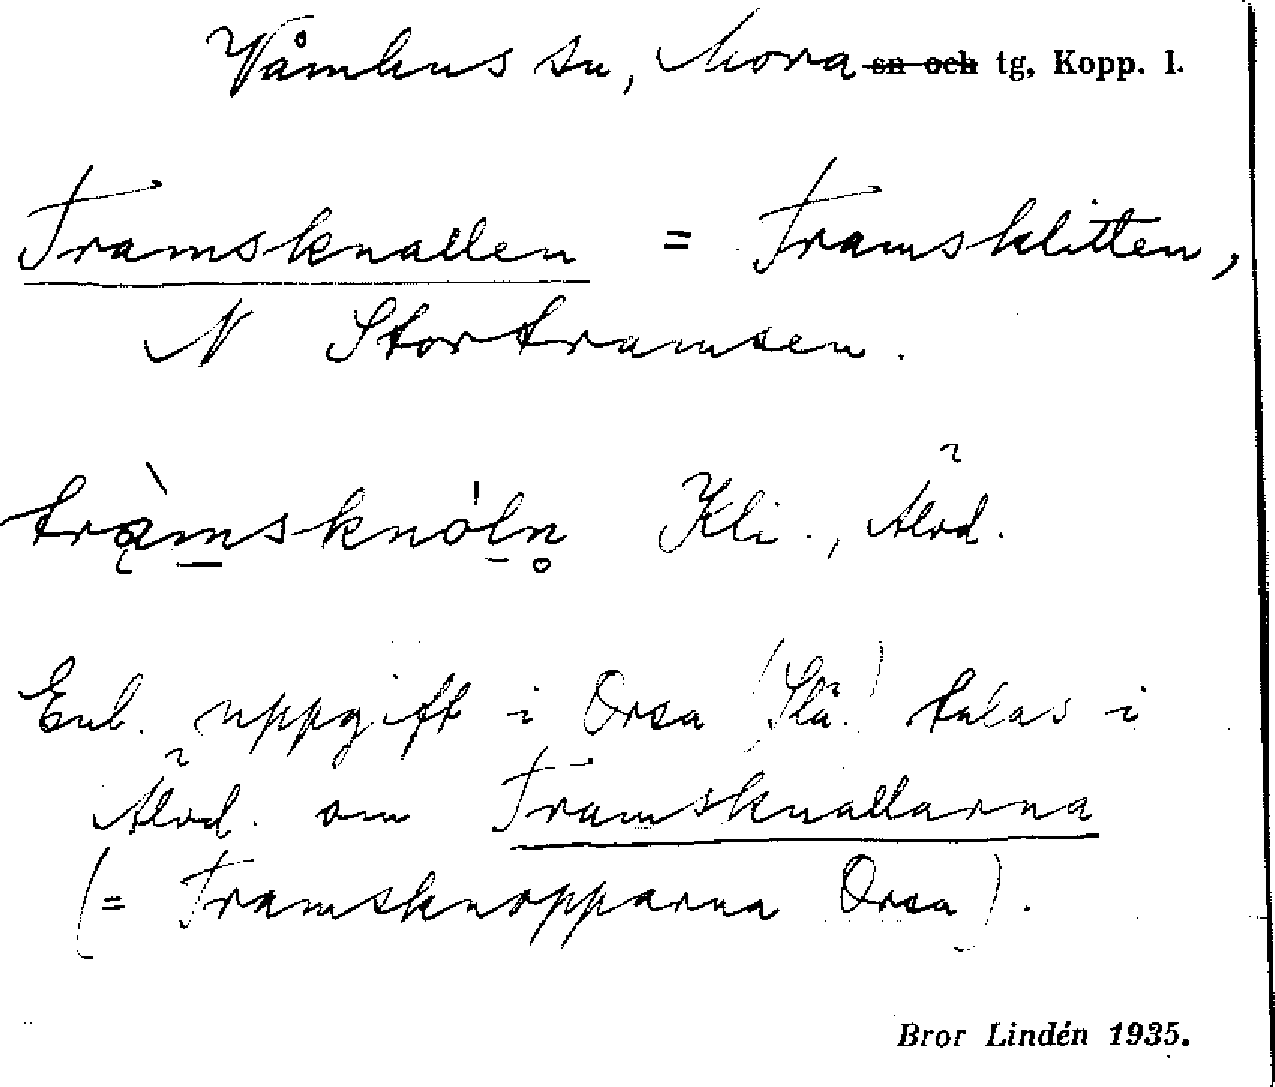 Våmhus sn, Mora sn och tg, Kopp. l.
Tramsknallen = Tramsklitten,
N Stortramsen.
trà̠msknó̠ln̥ Kli., Älvd.
Enl. uppgift i Orsa (Slä.) talas i
Älvd. om Tramsknallarna
(= Tramsknopparna Orsa).
Bror Lindén 1935.